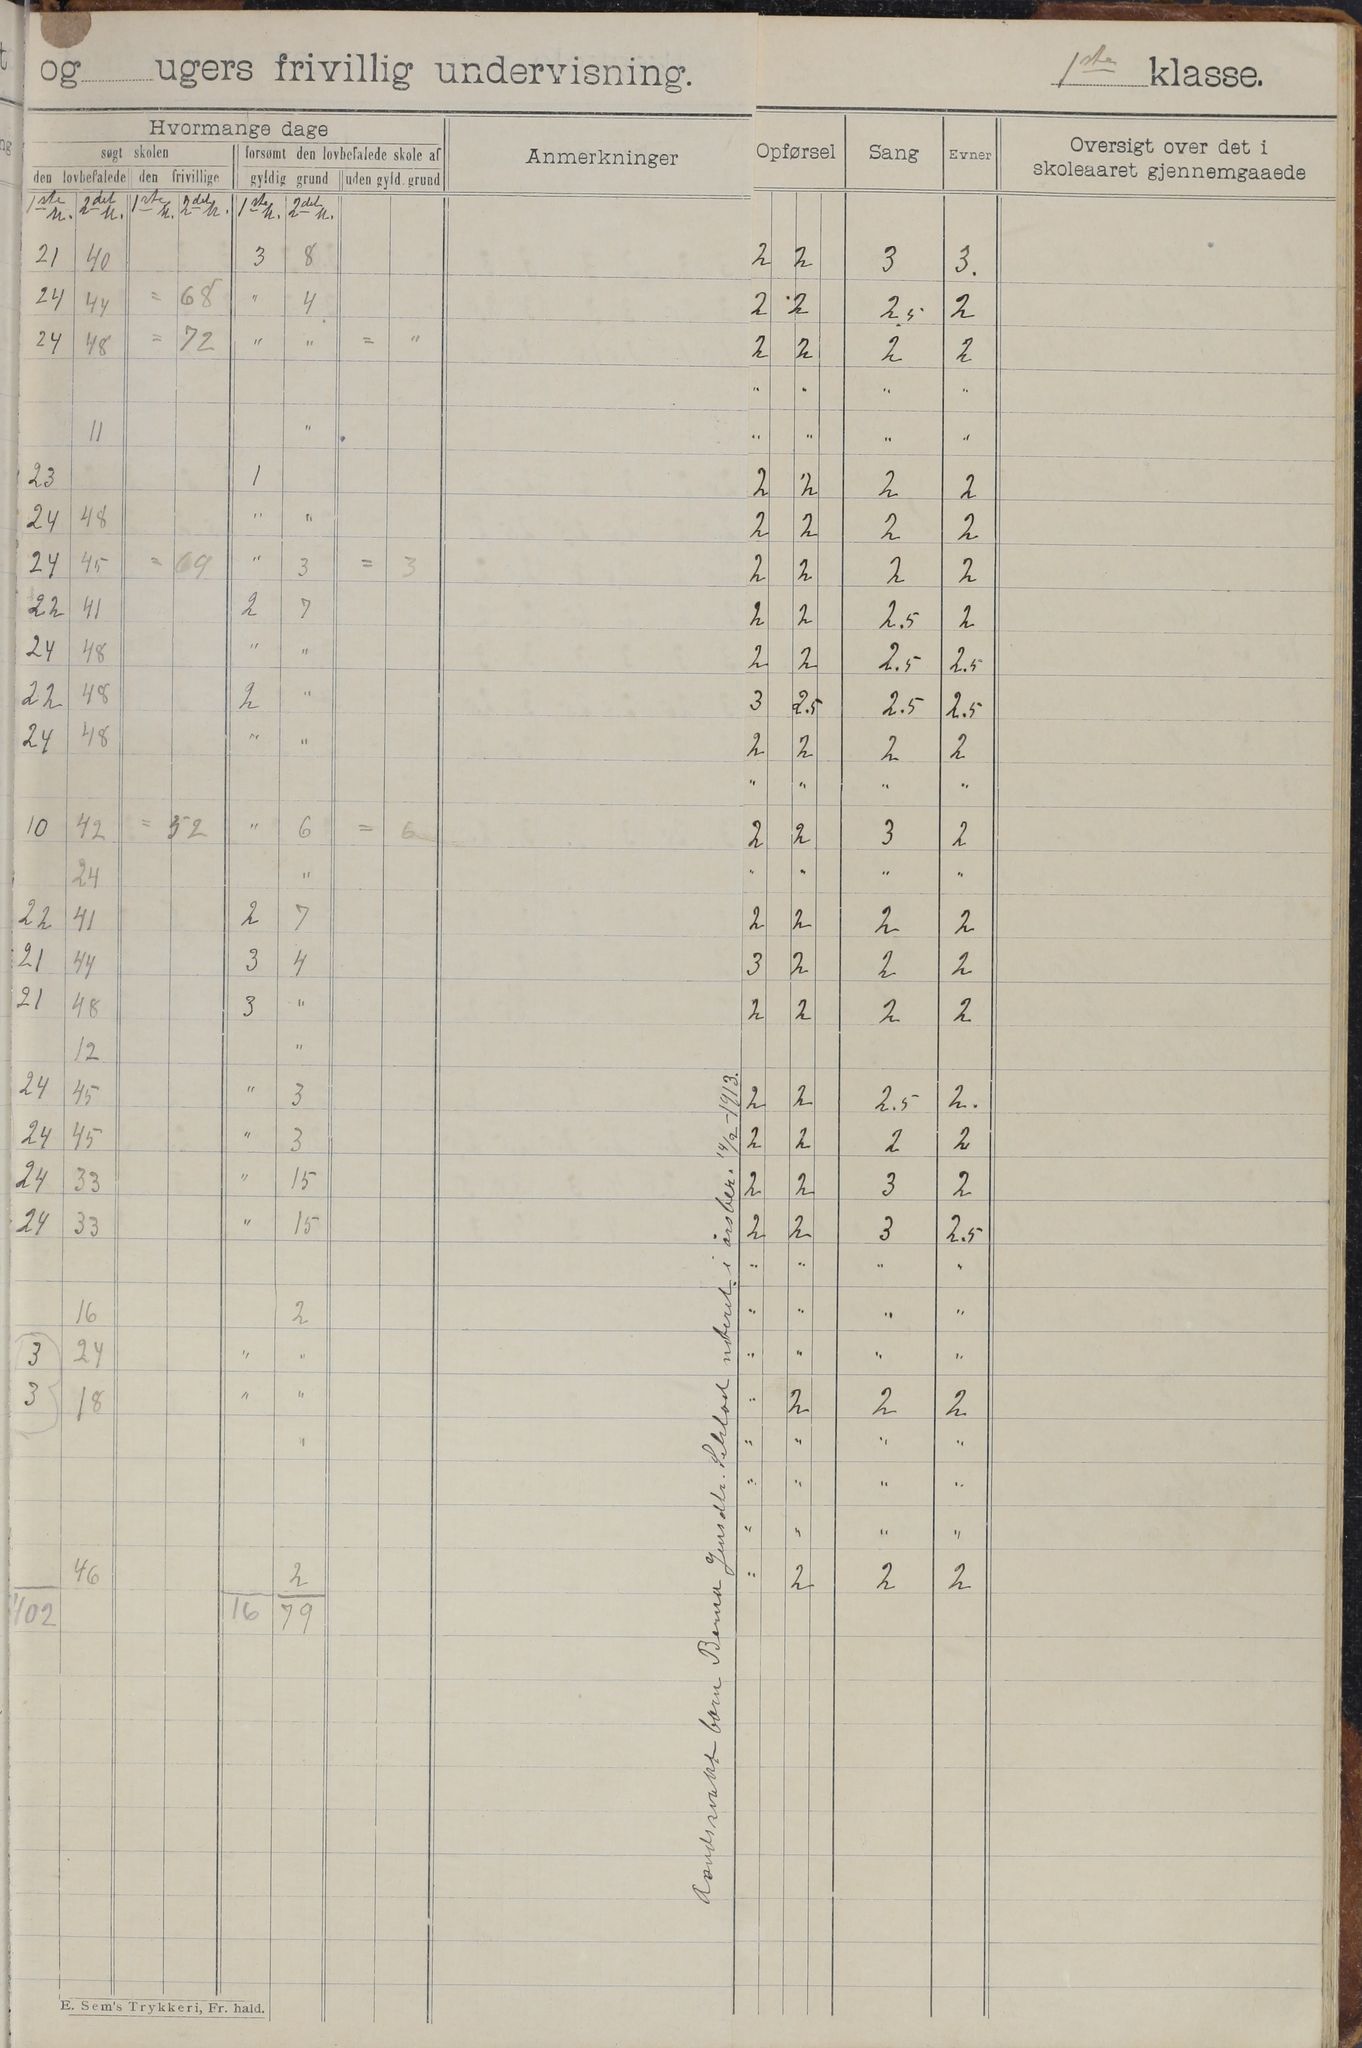 og ugers frivillig undervisning. 1ste klasse.
Hvormange dage
søgt skolen forsømt den lovbefalede skole af
den lovbefalede den frivillige gyldig grund uden gyld. grund
Anmerkninger Opførsel Sang Evner Oversigt over det i
skoleaaret gjennemgaaede
1ste u. 2det u. 1ste u. 2det u. 1ste u. 2det u.
21 40 3 8 2 2 3 3.
24 44 = 68 " 4 2 2 2.5 2
24 48 = 72 " " = " 2 2 2 2
" " " "
11 " " " " "
23 1 2 2 2 2
24 48 " " 2 2 2 2
24 45 = 69 " 3 = 3 2 2 2 2
22 41 2 7 2 2 2.5 2
24 48 " " 2 2 2.5 2.5
22 48 2 " 3 2.5 2.5 2.5
24 48 " " 2 2 2 2
" " " "
10 42 = 52 " 6 = 6 2 2 3 2
24 " " " " "
22 41 2 7 2 2 2 2
21 44 3 4 3 2 2 2
21 48 3 " 2 2 2 2
12 "
24 45 " 3 2 2 2.5 2.
24 45 " 3 2 2 2 2
24 33 " 15 2 2 3 2
24 33 " 15 2 2 3 2.5
" " " "
16 2 " " " "
3 24 " " " " " "
3 18 " " " 2 2 2
" " " " "
" " " "
" " " "
46 2 " 2 2 2
402 16 79
barn Jensdtr. noteret i årsber. 14/2-1913.
E. Sem's Trykkeri, Fr. hald.